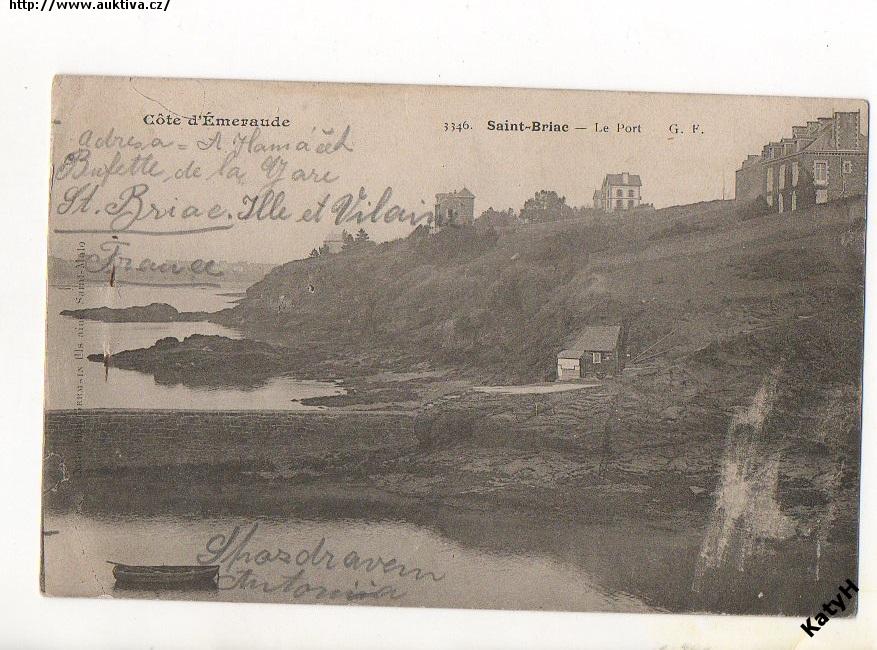 http://www.auktiva.cz/
Côte d'Émeraude
3346. Saint-Briac — Le Port G. F.
adresa = A Hamáček
Bufette de la Gare
St. Briac. Ille et Vilain
France
Spozdravem
Antonina
GERMAIN fils aîné, Saint-Malo
KatyH